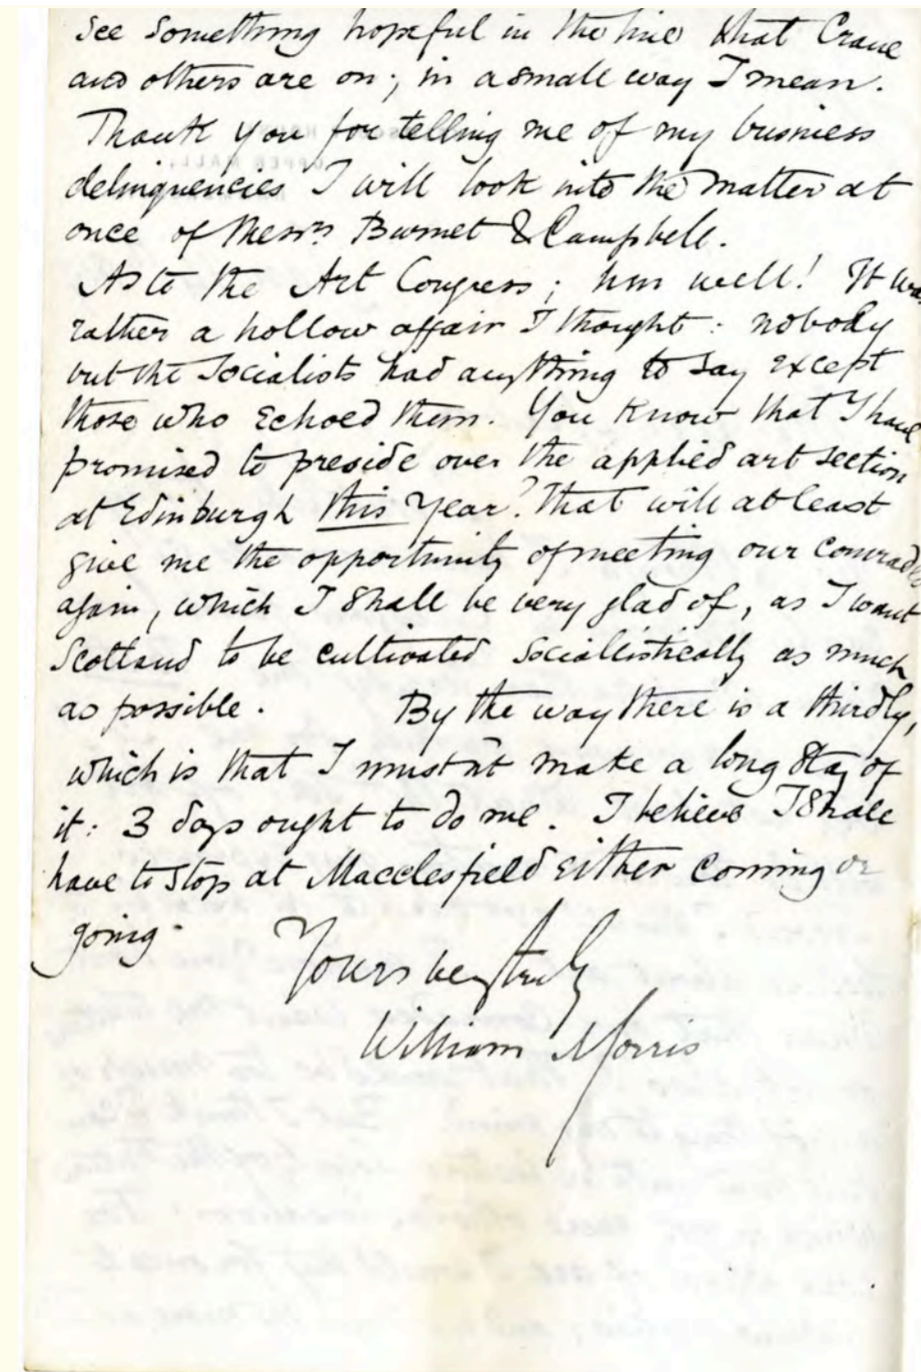 see something hopeful in the line that Crane
and others are on; in a small way I mean.
Thank you for telling me of my business
delinquencies I will look into the matter at
once of Messrs Burnet & Campbell.
As to the Art Congress; hm well! It was
rather a hollow affair I thought: nobody
but the Socialists had anything to say except
those who echoed them. You know that I have
promised to preside over the applied art section
at Edinburgh this year? that will at least
give me the opportunity of meeting our comrades
again, which I shall be very glad of, as I want
Scotland to be cultivated socialistically as much
as possible. By the way there is a thirdly,
which is that I must'nt make a long stay of
it: 3 days ought to do me. I believe I shall
have to stop at Macclesfield either coming or
going.
Yours very truly
William Morris